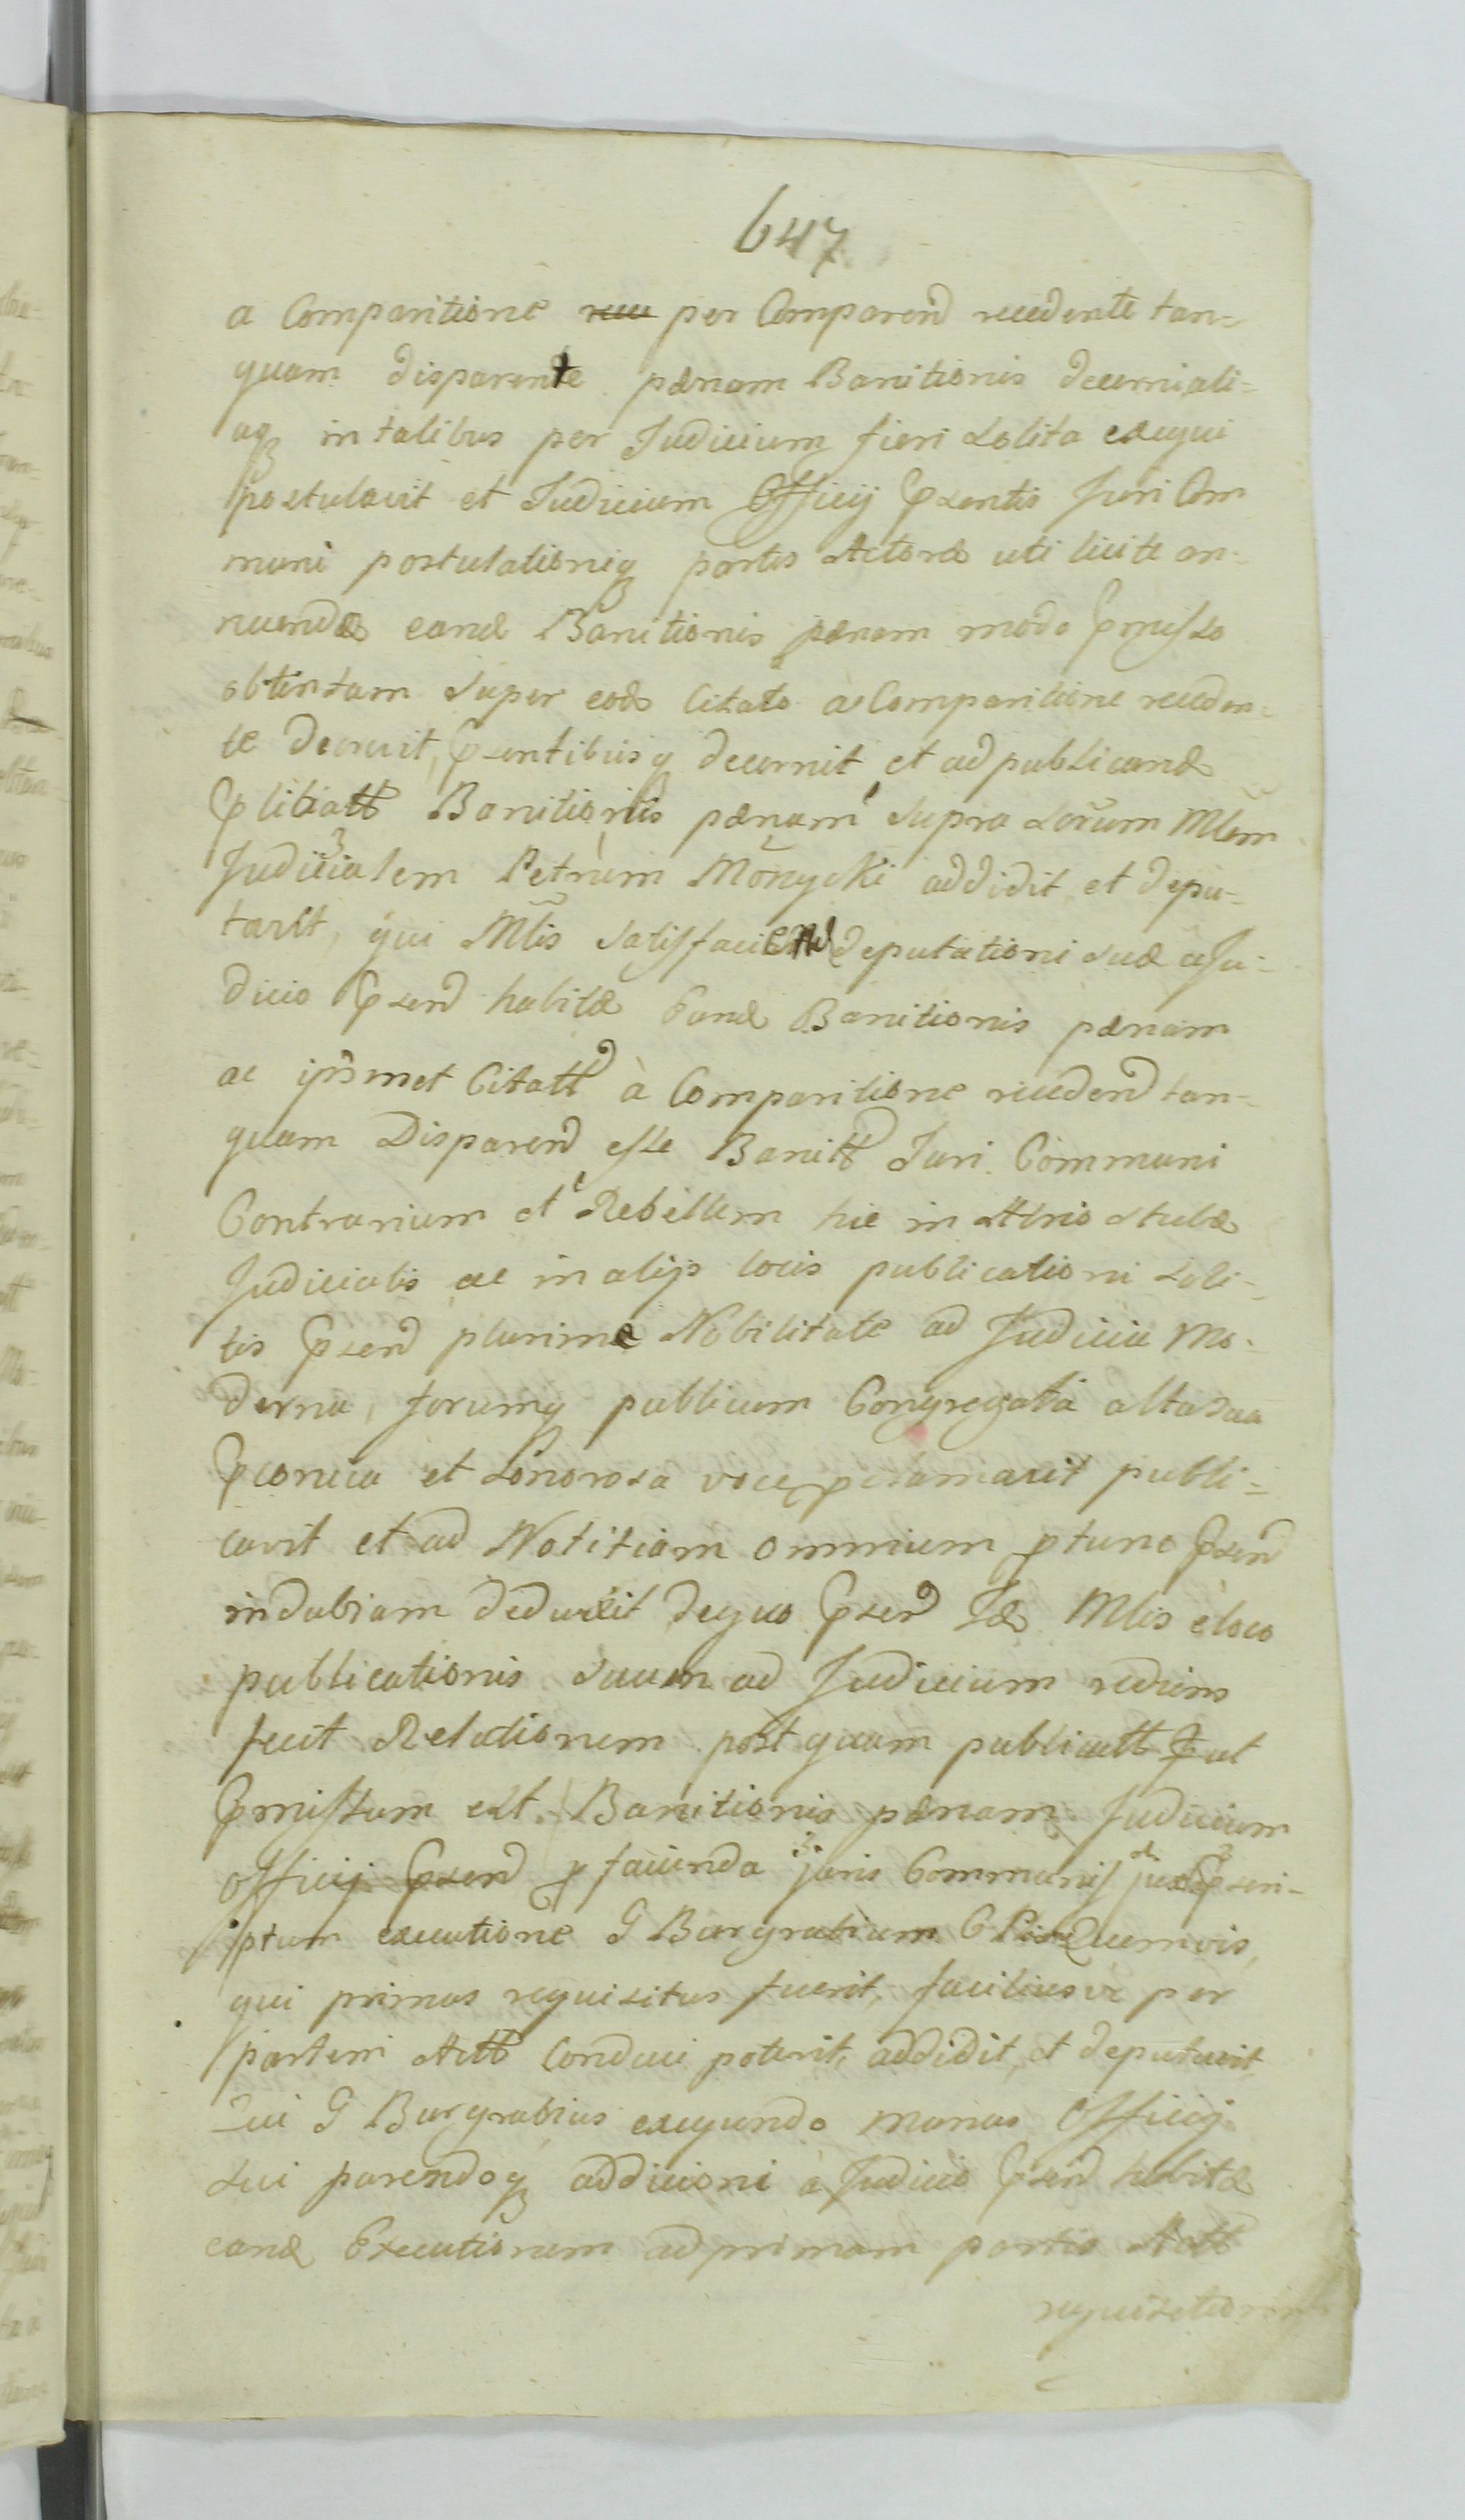 647
a Comparitione per Comparend recedente tan-
quam disparente pænam Banitionis decerni, ali-
aq in talibus per Judicium fieri solita exequi
postulavit et Judicium Officij Psentis Juri Com
muni postulationiq partis Actoræ uti licite an-
nuendo eand Banitionis pænam modo Pmisso
obtentam super eod Citato a Comparitione receden-
te decrevit, Psentibusq decernit et ad publicand
Banitionis pænam supra Mlem
Judicialem Petrum addidit et depu-
tavit, qui Mlis satisfaciend deputationi suæ a Ju-
dicio Psend habitæ Eand Banitionis pænam
ac ipsmet Citatt à Comparitione recedend tan-
quam Disparend esse Banitt Juri Communi
Contrarium et Rebellem hic in Atrio stubæ
Judicialis ac in alijs locis publicationi soli-
tis Psend plurima Nobilitate ad Judicia Mo-
derna, forumq publicum Congregata alta sua
Pconica et Sonorosa voce pclamavit publi-
cavit et ad Notitiam omnium ptunc Psend
indubiam deduxit de quo Psend Id Mlis e loco
publicationis suam ad Judicium rediens
fecit Relationem post quam publicatt Put
Pmissum est Banitionis pænam Judicium
officij Psend p facienda juris Communis juxta Pscri-
ptum executione G Burgrabium C Quemvis,
qui primus requisitus fuerit, faciliusve per
partem Actt Conduci poterit, addidit, et deputavit
Qui G Burgrabius exequendo munus Officij
sui parendoq addicioni a Judicio Psend habitæ
eand Executionem ad primam partis Actt
requisitionem